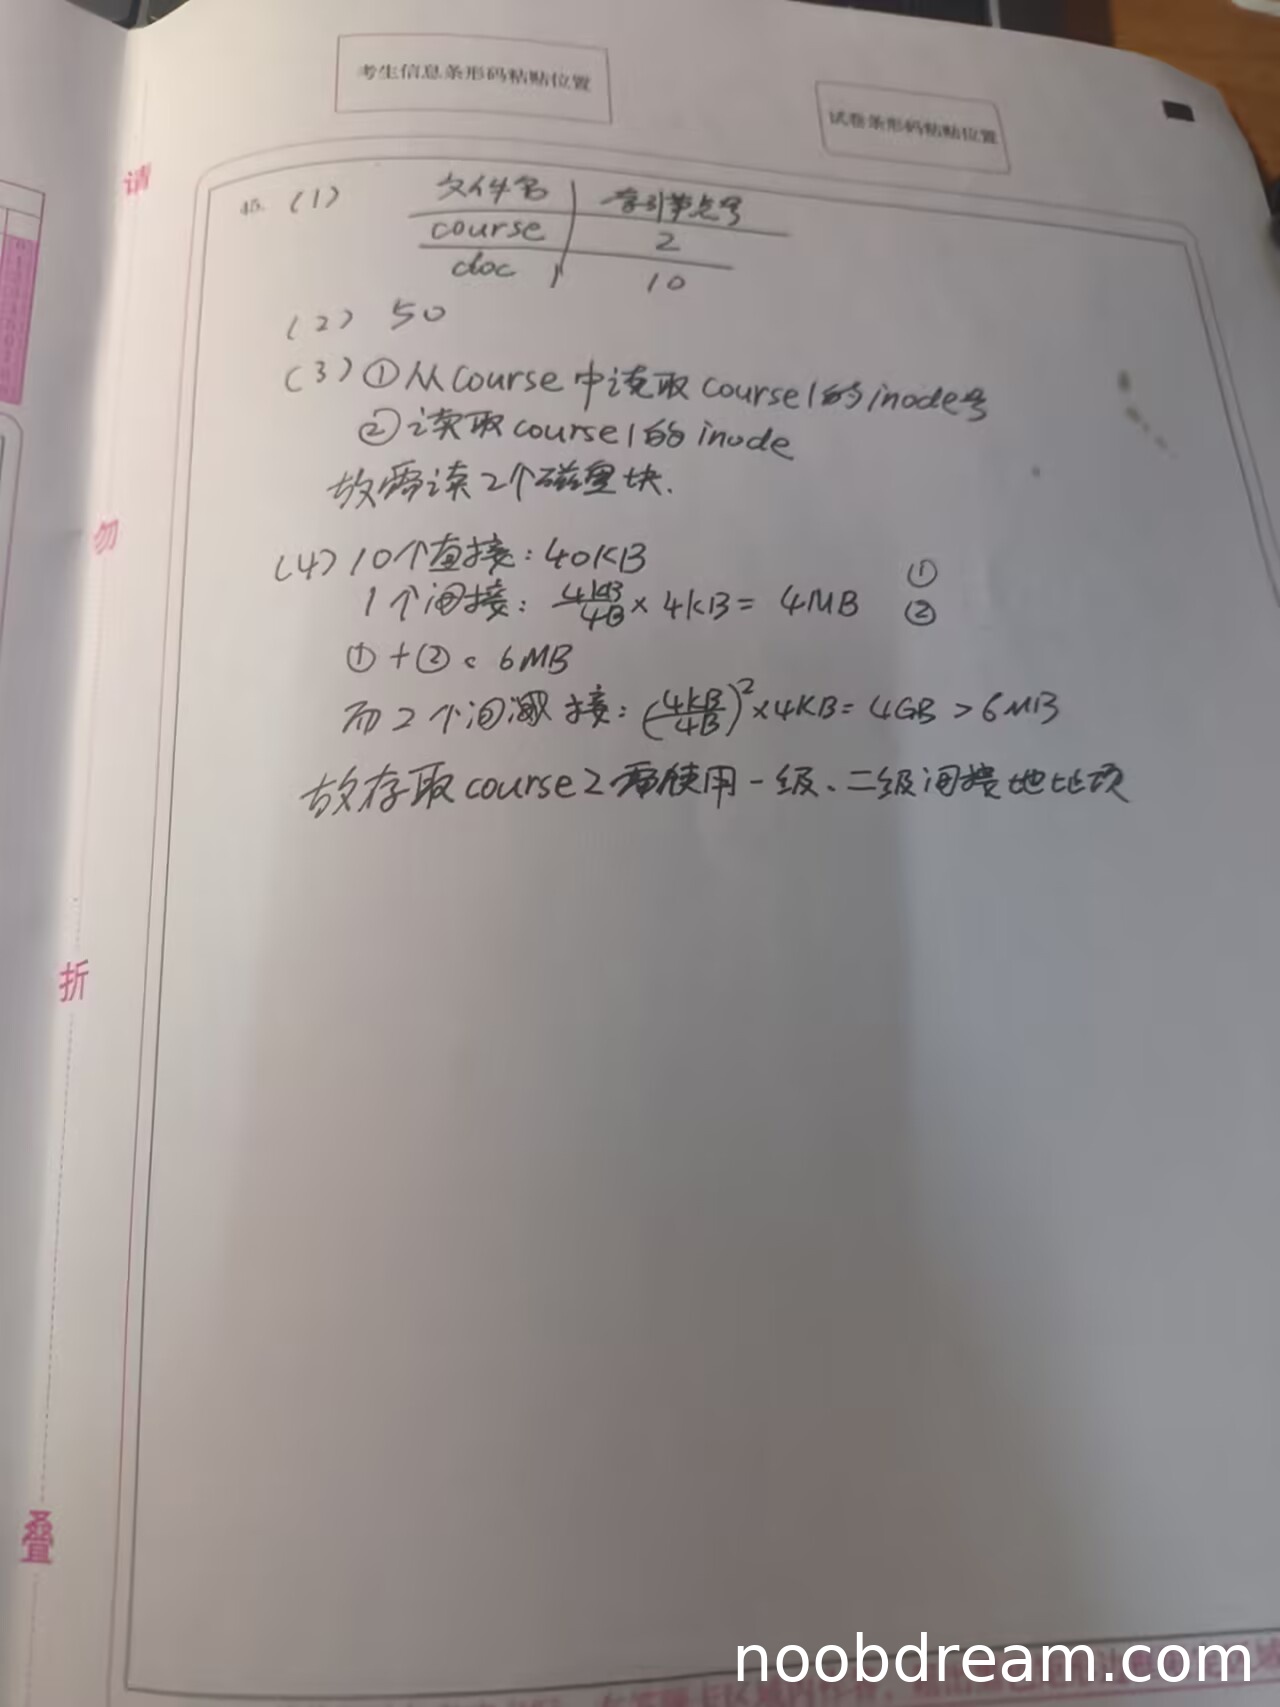 考生信息条形码粘贴位置
试卷条形码粘贴位置
请
勿
折
叠
45. (1) 文件名 索引节点号
course 2
doc 10
(2) 50
(3) ①从course中读取course1的inode号
②读取course1的inode
故需读2个磁盘块.
(4) 10个直接: 40KB ①
1个间接: 4KB/4B × 4KB = 4MB ②
①+② < 6MB
而2个间接: (4KB/4B)²×4KB = 4GB > 6MB
故存取course2需使用一级、二级间接地址项
noobdream.com